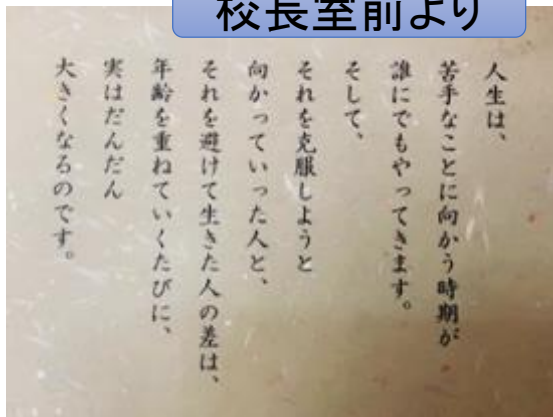 校長室前より
人生は、
苦手なことに向かう時期が
誰にでもやってきます。
そして、
それを克服しようと
向かっていった人と、
それを避けて生きた人の差は、
年齢を重ねていくたびに、
実はだんだん
大きくなるのです。